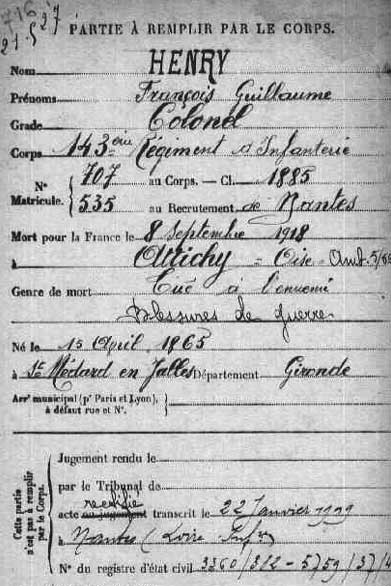 716
21-5-27
PARTIE À REMPLIR PAR LE CORPS.
Nom HENRY
Prénoms François Guillaume
Grade Colonel
Corps 143ème Régiment d'Infanterie
N° Matricule. { 707 au Corps. — Cl. 1885
535 au Recrutement de Nantes
Mort pour la France le 8 Septembre 1918
à Attichy = Oise = Amb. 5/66
Genre de mort Tué à l'ennemi
Blessures de guerre
Né le 15 April 1865
à St Médard en Jalles Département Gironde
Arrt municipal (pr Paris et Lyon),
à défaut rue et N°.
Cette partie n'est pas à remplir par le Corps.
Jugement rendu le
par le Tribunal de
rectifié
acte ou jugement transcrit le 22 Janvier 1919
à Nantes (Loire Infre)
N° du registre d'état civil 3360/312-5759/37/